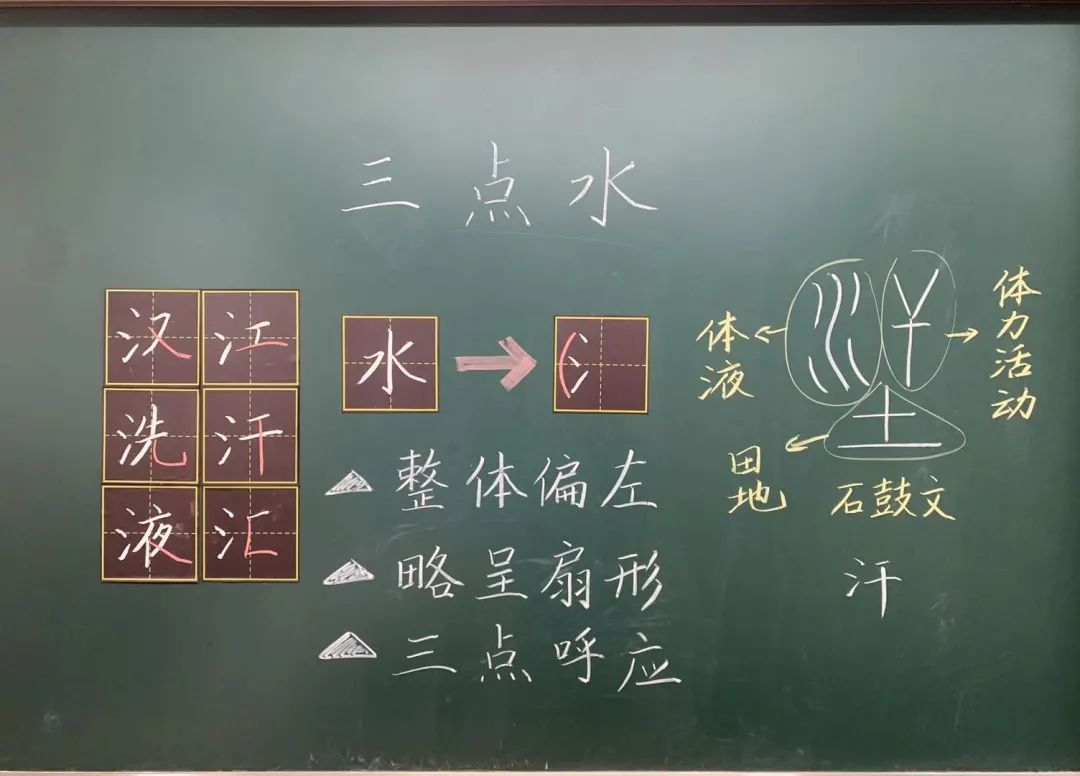 三点水
汉江
洗汗
液汇
水 → 氵
整体偏左
略呈扇形
三点呼应
体液
体力活动
土
田地
石鼓文
汗